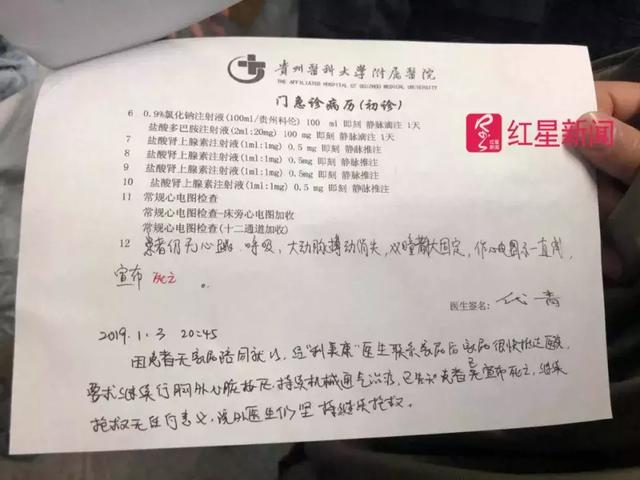 貴州醫科大學附屬醫院
THE AFFILIATED HOSPITAL OF GUIZHOU MEDICAL UNIVERSITY
门急诊病历(初诊)
6 0.9%氯化钠注射液(100ml/贵州科伦) 100 ml 即刻 静脉滴注 1天
盐酸多巴胺注射液(2ml:20mg) 100 mg 即刻 静脉滴注 1天
7 盐酸肾上腺素注射液(1ml:1mg) 0.5 mg 即刻 静脉推注
8 盐酸肾上腺素注射液(1ml:1mg) 0.5 mg 即刻 静脉推注
9 盐酸肾上腺素注射液(1ml:1mg) 0.5mg 即刻 静脉推注
10 盐酸肾上腺素注射液(1ml:1mg) 0.5 mg 即刻 静脉推注
11 常规心电图检查
常规心电图检查-床旁心电图加收
常规心电图检查(十二通道加收)
12 患者仍无心跳、呼吸,大动脉搏动消失,双瞳散大固定,心电图示一直线,
宣布死亡。
医生签名:
2019.1.3 20:45
因患者无家属陪同就诊,经"利美康"医生联系家属后家属很快抵达医院,
要求继续行胸外心脏按压,持续机械通气治疗,已告知患者已宣布死亡,继续
抢救无任何意义,院外医生仍坚持继续抢救。
红星新闻